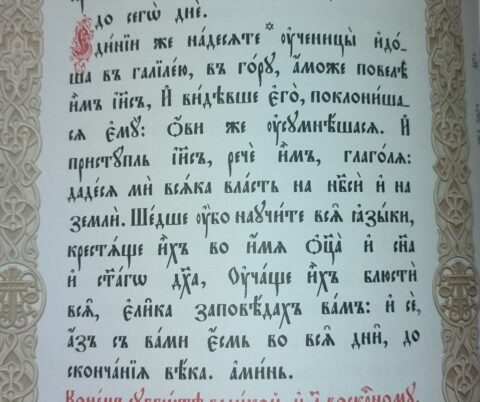 до сегѡ̀ днѐ.
Є҆ди́нїи же на́десѧте ᲂу҆чєницы̀ и҆до́-
ша въ галїле́ю, въ го́рꙋ, а҆́може повелѣ̀
и҆̀мъ і҆и҃съ, И҆ ви́дѣвше є҆го̀, поклони́ша_
сѧ є҆мꙋ̀: Ѻ҆́ви же ᲂу҆сꙋмнѣ́шасѧ. И҆
пристꙋ́пль і҆и҃съ, речѐ и҆̀мъ, глаго́лѧ:
даде́сѧ мѝ всѧ́ка вла́сть на нб҃сѝ и҆ на
землѝ. Ше́дше ᲂу҆̀бо наꙋчи́те всѧ̑ ꙗ҆зы́ки,
крестѧ́ще и҆̀хъ во и҆́мѧ ѻ҆ц҃а̀ и҆ сн҃а
и҆ ст҃а́гѡ дх҃а, Оу҆ча́ще и҆̀хъ блюстѝ
всѧ̑, є҆ли̑ка заповѣ́дахъ ва́мъ: и҆ сѐ,
а҆́зъ съ ва́ми є҆́смь во всѧ̑ дни̑, до
сконча́нїѧ вѣ́ка. а҆ми́нь.